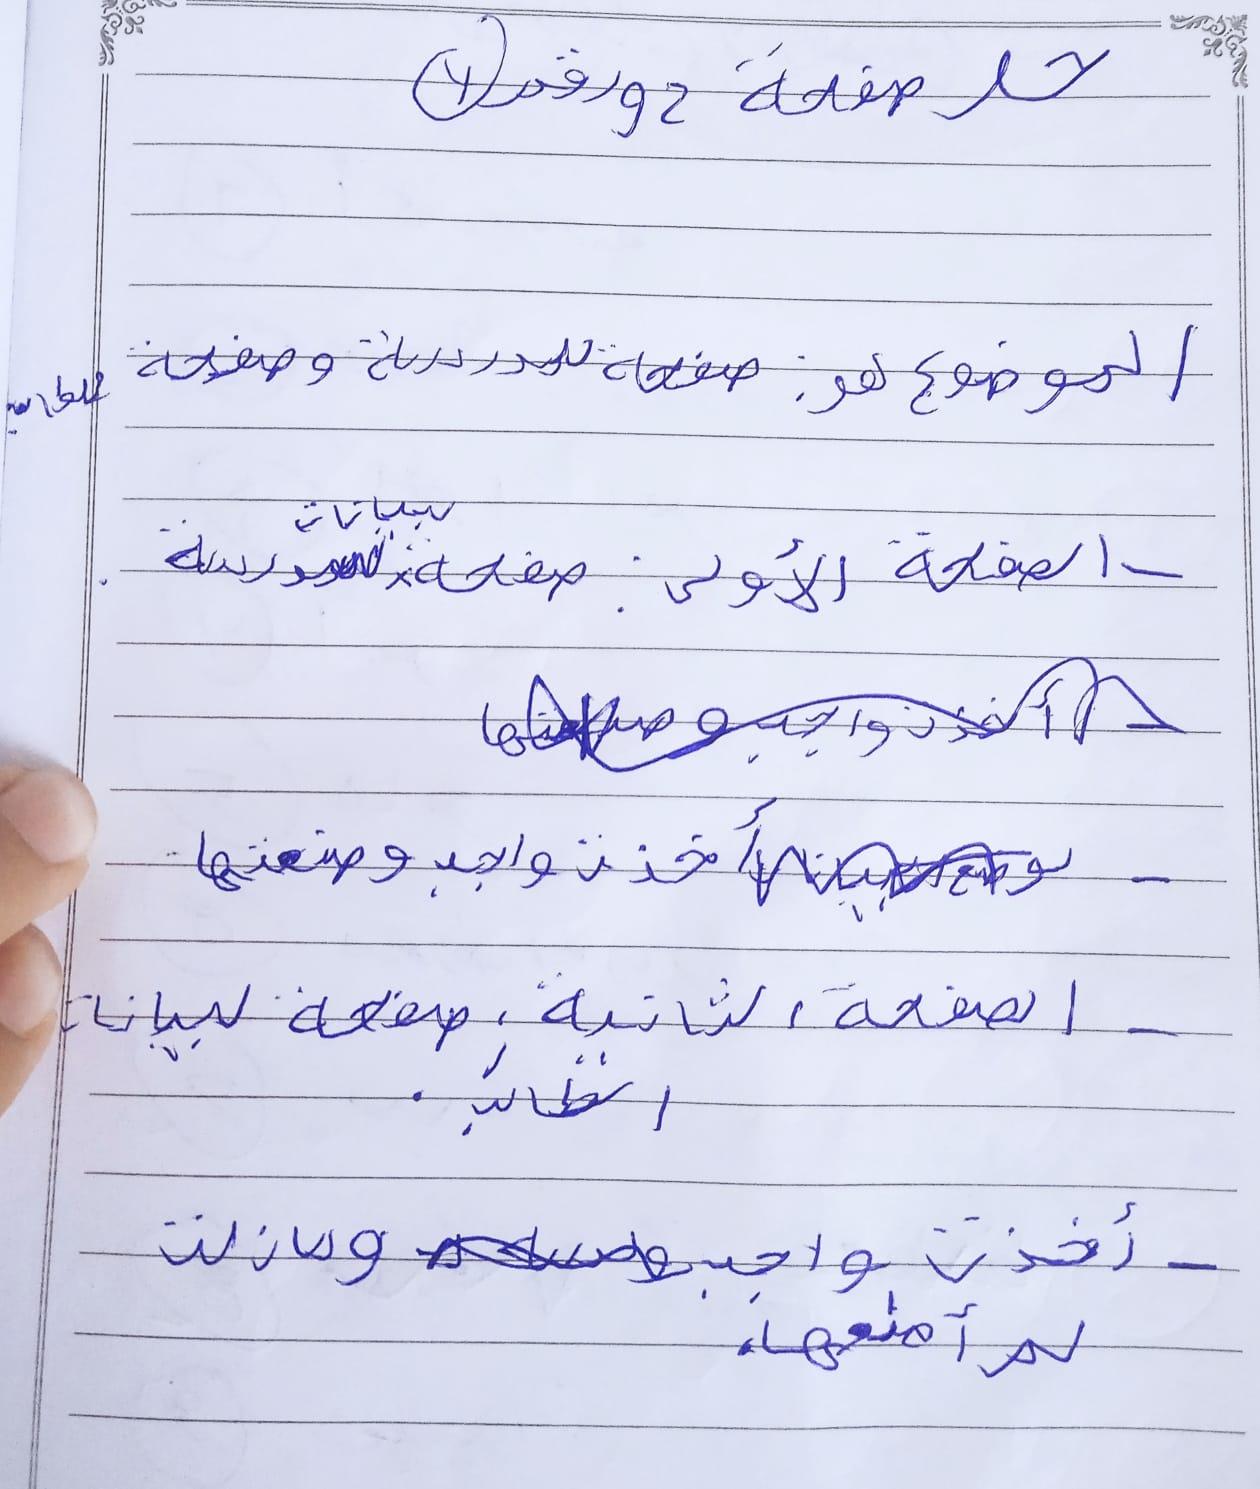 حل صفحة 2 ورقم (7)
الموضوع هو: صفحة للمدرسة وصفحة للطالب
- الصفحة الأولى: صفحة لبيانات المدرسة.
أخذت واجب و
- أخذت واجب وصنعتها.
- الصفحة الثانية: صفحة لبيانات
الطالب.
- أخذت واجب ومازلت
لم أصنعها.